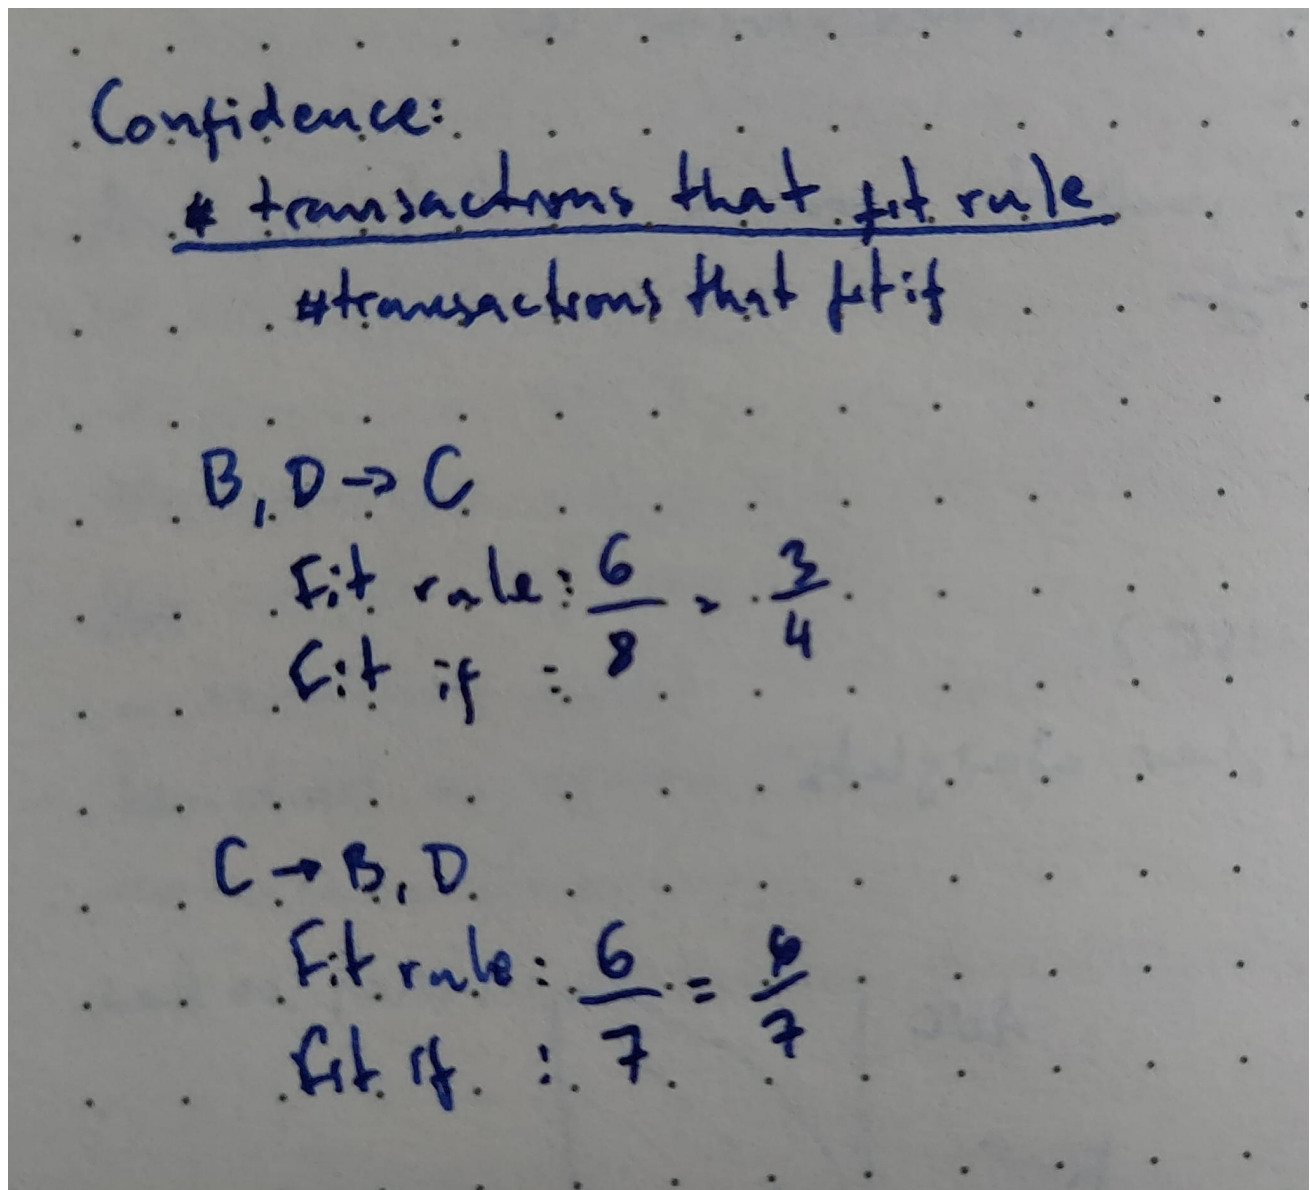 Confidence:
# transactions that fit rule
#transactions that fit if
B, D → C
Fit rule: 6/8 = 3/4
Fit if :
C → B, D
Fit rule: 6/7 = 6/7
Fit if :